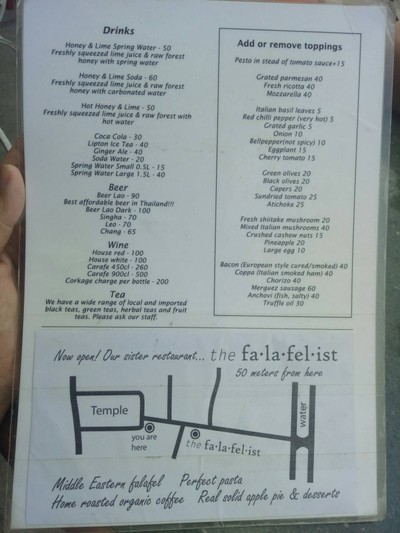 Drinks
Honey & Lime Spring Water - 50
Freshly squeezed lime juice & raw forest
honey with spring water
Honey & Lime Soda - 60
Freshly squeezed lime juice & raw forest
honey with carbonated water
Hot Honey & Lime - 50
Freshly squeezed lime juice & raw forest with
hot water
Coca Cola - 30
Lipton Ice Tea - 40
Ginger Ale - 40
Soda Water - 20
Spring Water Small 0.5L - 15
Spring Water Large 1.5L - 40
Beer
Beer Lao - 90
Best affordable beer in Thailand!!!
Beer Lao Dark - 100
Singha - 70
Leo - 70
Chang - 65
Wine
House red - 100
House white - 100
Carafe 450cl - 260
Carafe 900cl - 500
Corkage charge per bottle - 200
Tea
We have a wide range of local and imported
black teas, green teas, herbal teas and fruit
teas. Please ask our staff.
Add or remove toppings
Pesto in stead of tomato sauce+15
Grated parmesan 40
Fresh ricotta 40
Mozzarella 40
Italian basil leaves 5
Red chilli pepper (very hot) 5
Grated garlic 5
Onion 10
Bellpepper(not spicy) 10
Eggplant 15
Cherry tomato 15
Green olives 20
Black olives 20
Capers 20
Sundried tomato 25
Atichoks 25
Fresh shiitake mushroom 20
Mixed Italian mushrooms 40
Crushed cashew nuts 15
Pineapple 20
Large egg 10
Bacon (European style cured/smoked) 40
Coppa (Italian smoked ham) 40
Chorizo 40
Merguez sausage 60
Anchovi (fish, salty) 40
Truffle oil 30
Now open! Our sister restaurant... the fa·la·fel·ist
50 meters from here
Temple
you are
here
the fa·la·fel·ist
water
Middle Eastern falafel Perfect pasta
Home roasted organic coffee Real solid apple pie & desserts